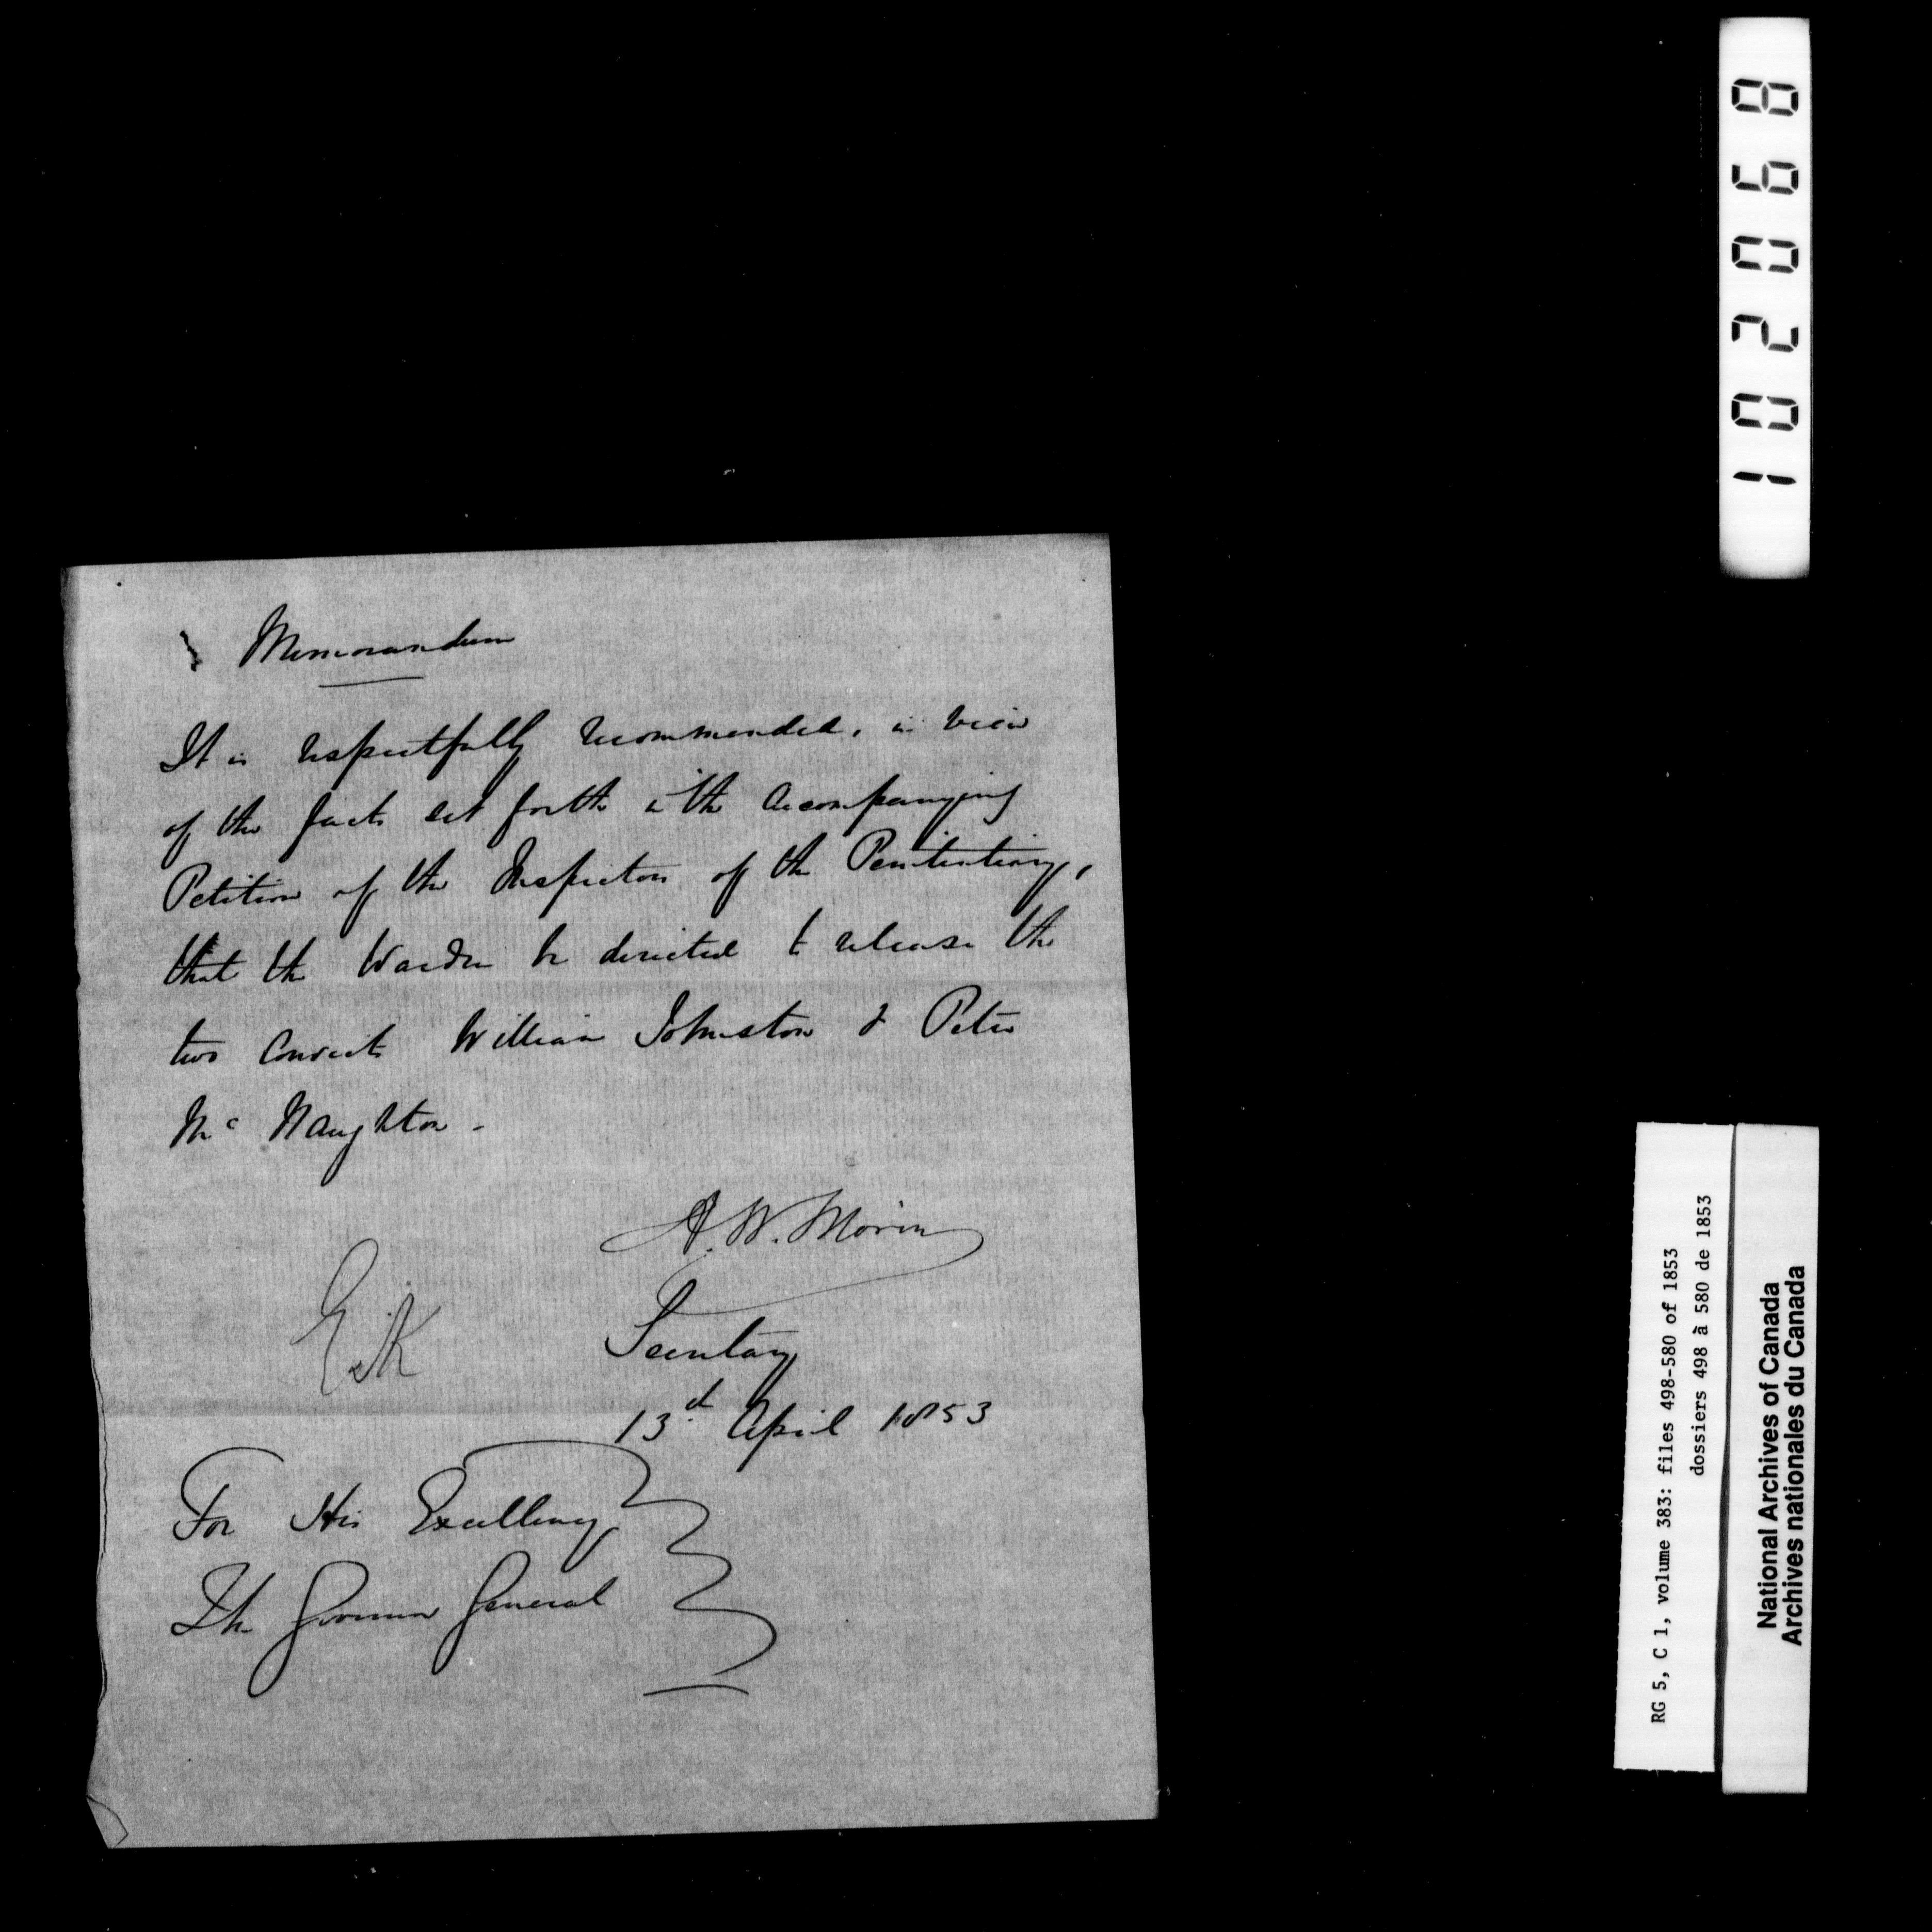 Memorandum
It is respectfully recommended, in view
of the facts set forth in the accompanying
Petition of the Inspectors of the Penitentiary,
that the Warden be directed to release the
two Convicts William Johnston & Peter
Mc Naughton -
A. N. Morin
E & K
Secretary
13.d April 1853
For His Excellency
The Governor General
102068
RG 5, C 1, volume 383: files 498-580 of 1853
dossiers 498 à 580 de 1853
National Archives of Canada
Archives nationales du Canada